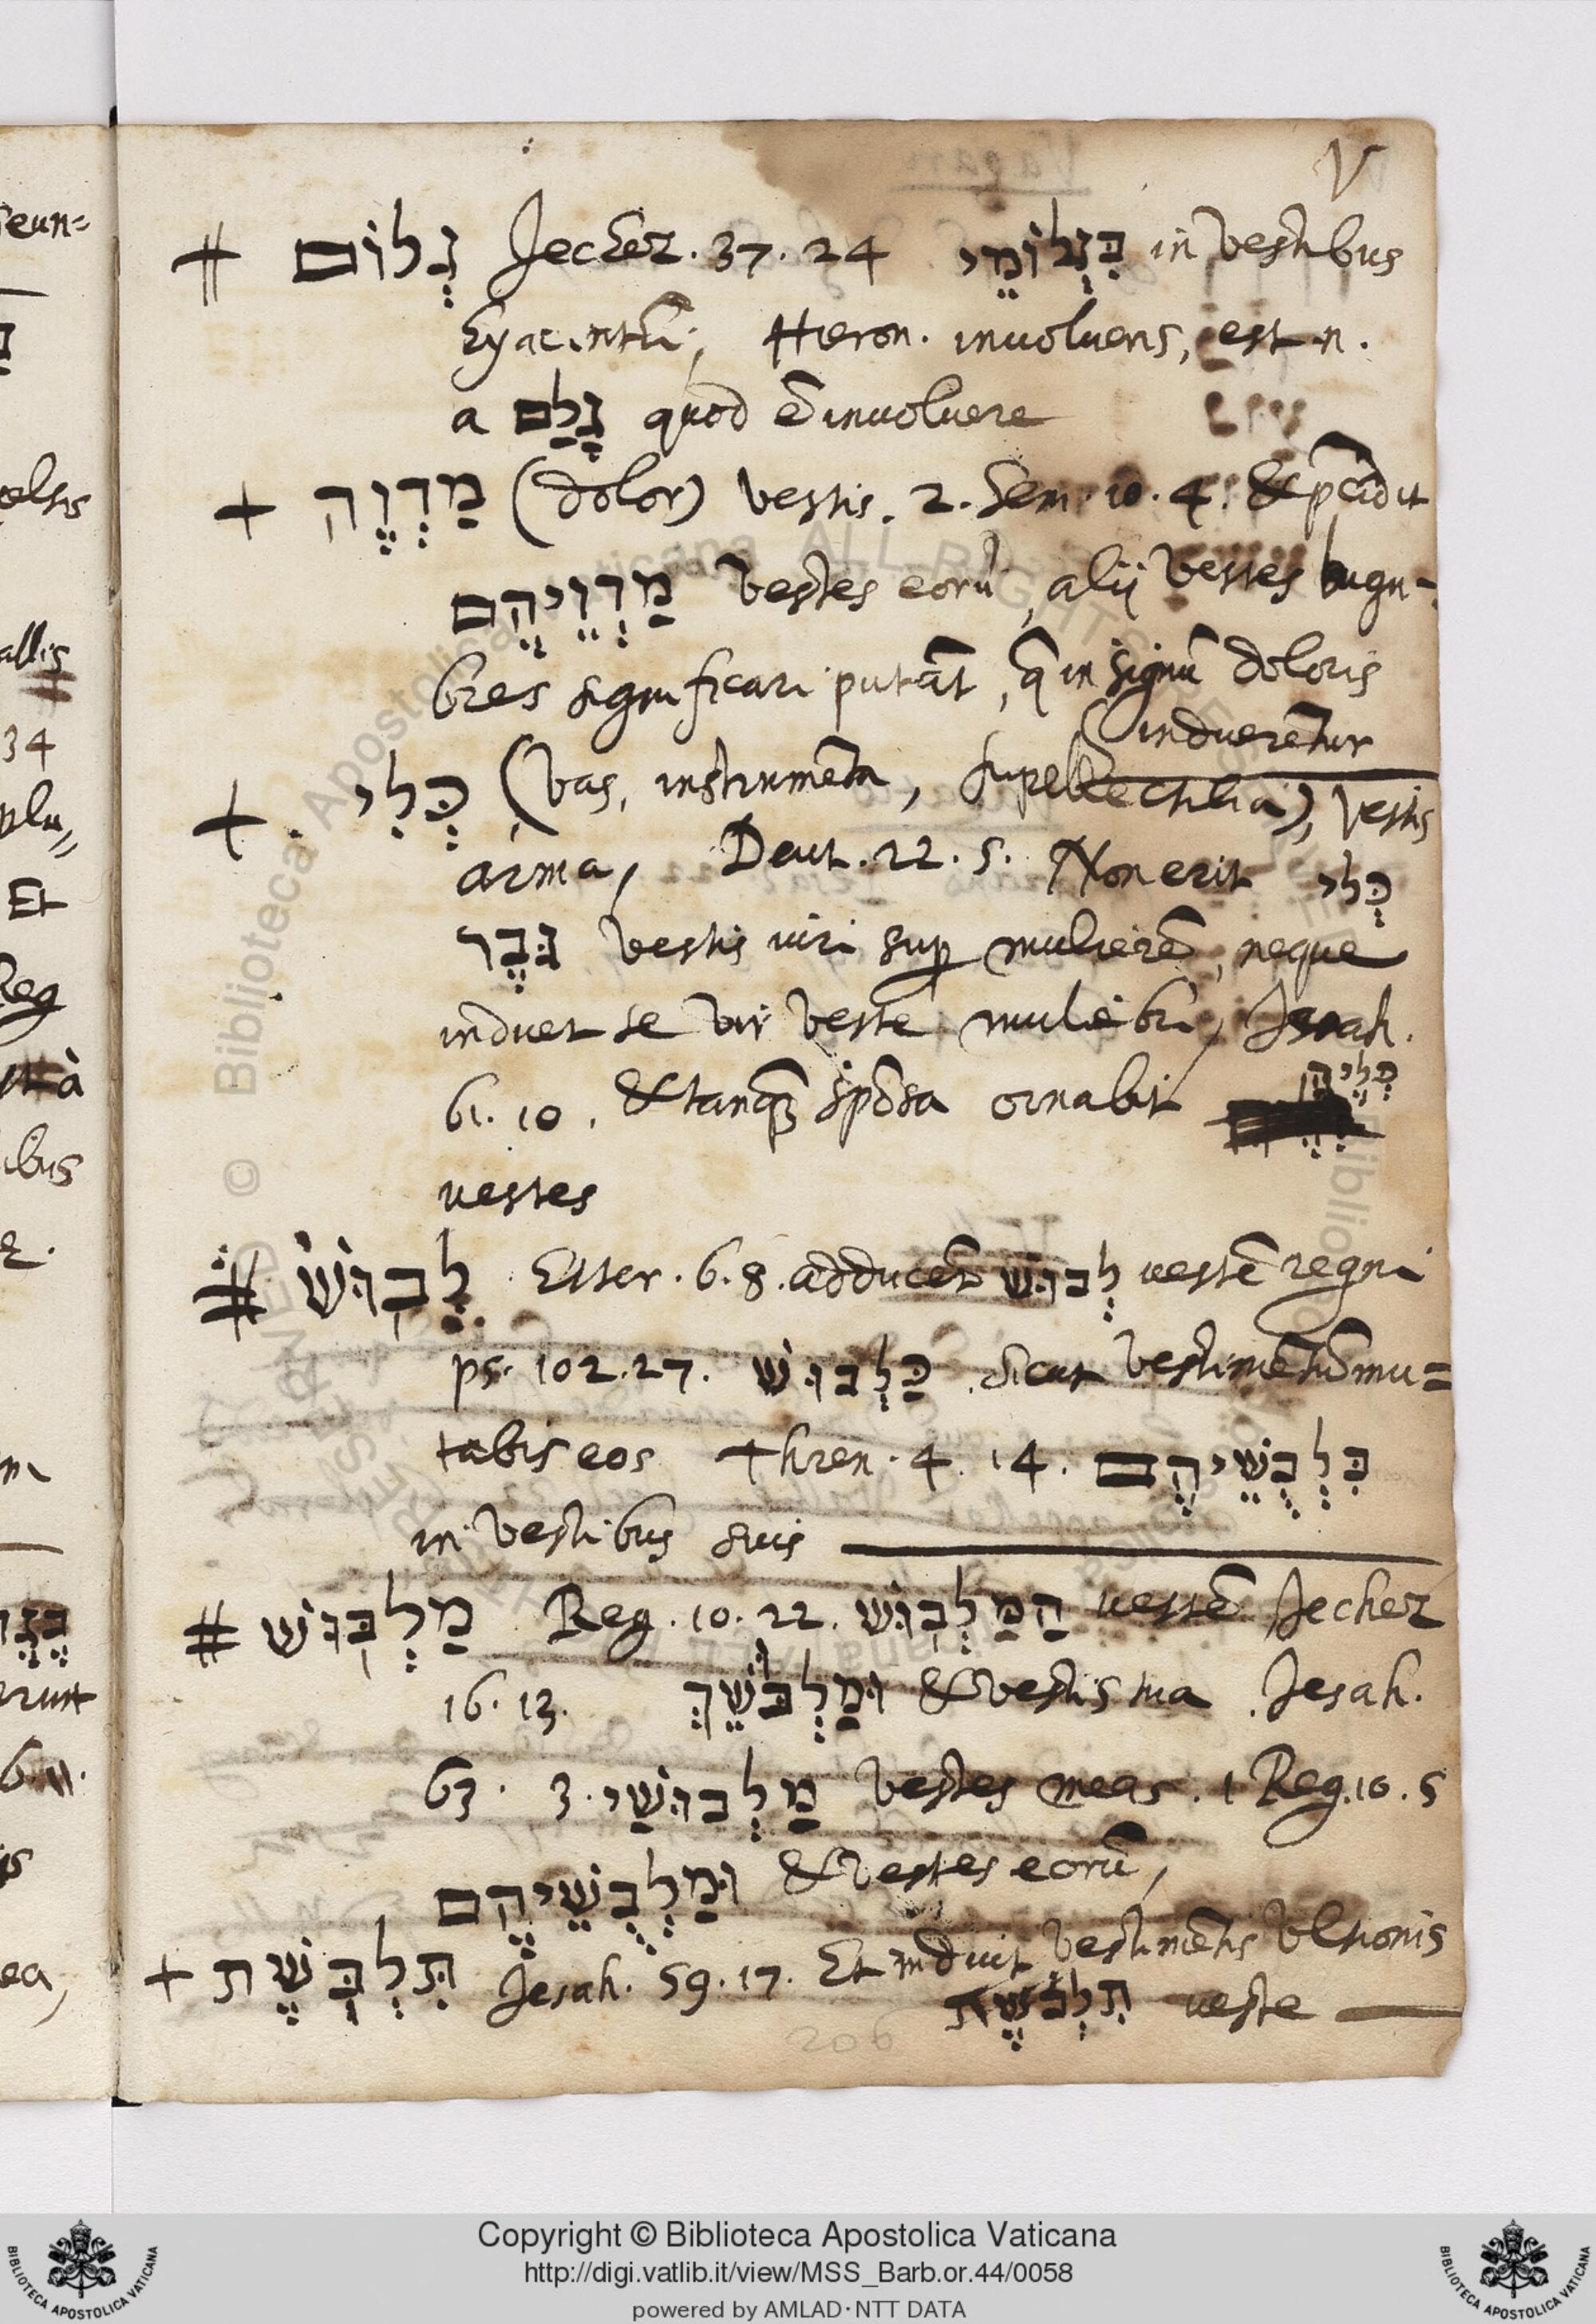 V
גְלוֹם Jechez. 37. 24 בִּגְלוֹמֵי in vestibus
hyacinthi, Hieron. involuens, est n.
a גָלַם quod ē involuere
מַדְוֶה (dolor) vestis. 2. Sem. 10. 4. & p̄cidit
מַדְוֵיהֶם vestes eorū, alij vestes lugu-
bres significari putāt, q̄ in signū doloris
induerētur
כְּלִי (vas, instrumēta, supellectilia), vestis
arma, Deut. 22. 5. Non erit כְּלִי
גֶּבֶר vestis viri sup mulierē, neque
induet se vir veste muliebri, Jesah.
61. 10. & tanq̄ spōsa ornabit כֵּלֶיהָ
vestes
לְבוּשׁ Ester. 6. 8. adducēt לְבוּשׁ vestē regni
ps. 102. 27. כַּלְבוּשׁ sicut vestimētū mu=
tabis eos Thren. 4. 14. בִּלְבֻשֵׁיהֶם
in vestibus suis
מַלְבּוּשׁ Reg. 10. 22. הַמַּלְבּוּשׁ vestē Jechez
16. 13. וּמַלְבּוּשֵׁךְ & vestis tua Jesah.
63. 3. מַלְבוּשַׁי vestes meas. 1 Reg. 10. 5
וּמַלְבֻּשֵׁיהֶם & vestes eorū,
תִּלְבֹּשֶׁת Jesah. 59. 17. Et induit vestimētis vltionis
תִלְבֹּשֶׁת veste
206
Copyright © Biblioteca Apostolica Vaticana
http://digi.vatlib.it/view/MSS_Barb.or.44/0058
powered by AMLAD·NTT DATA